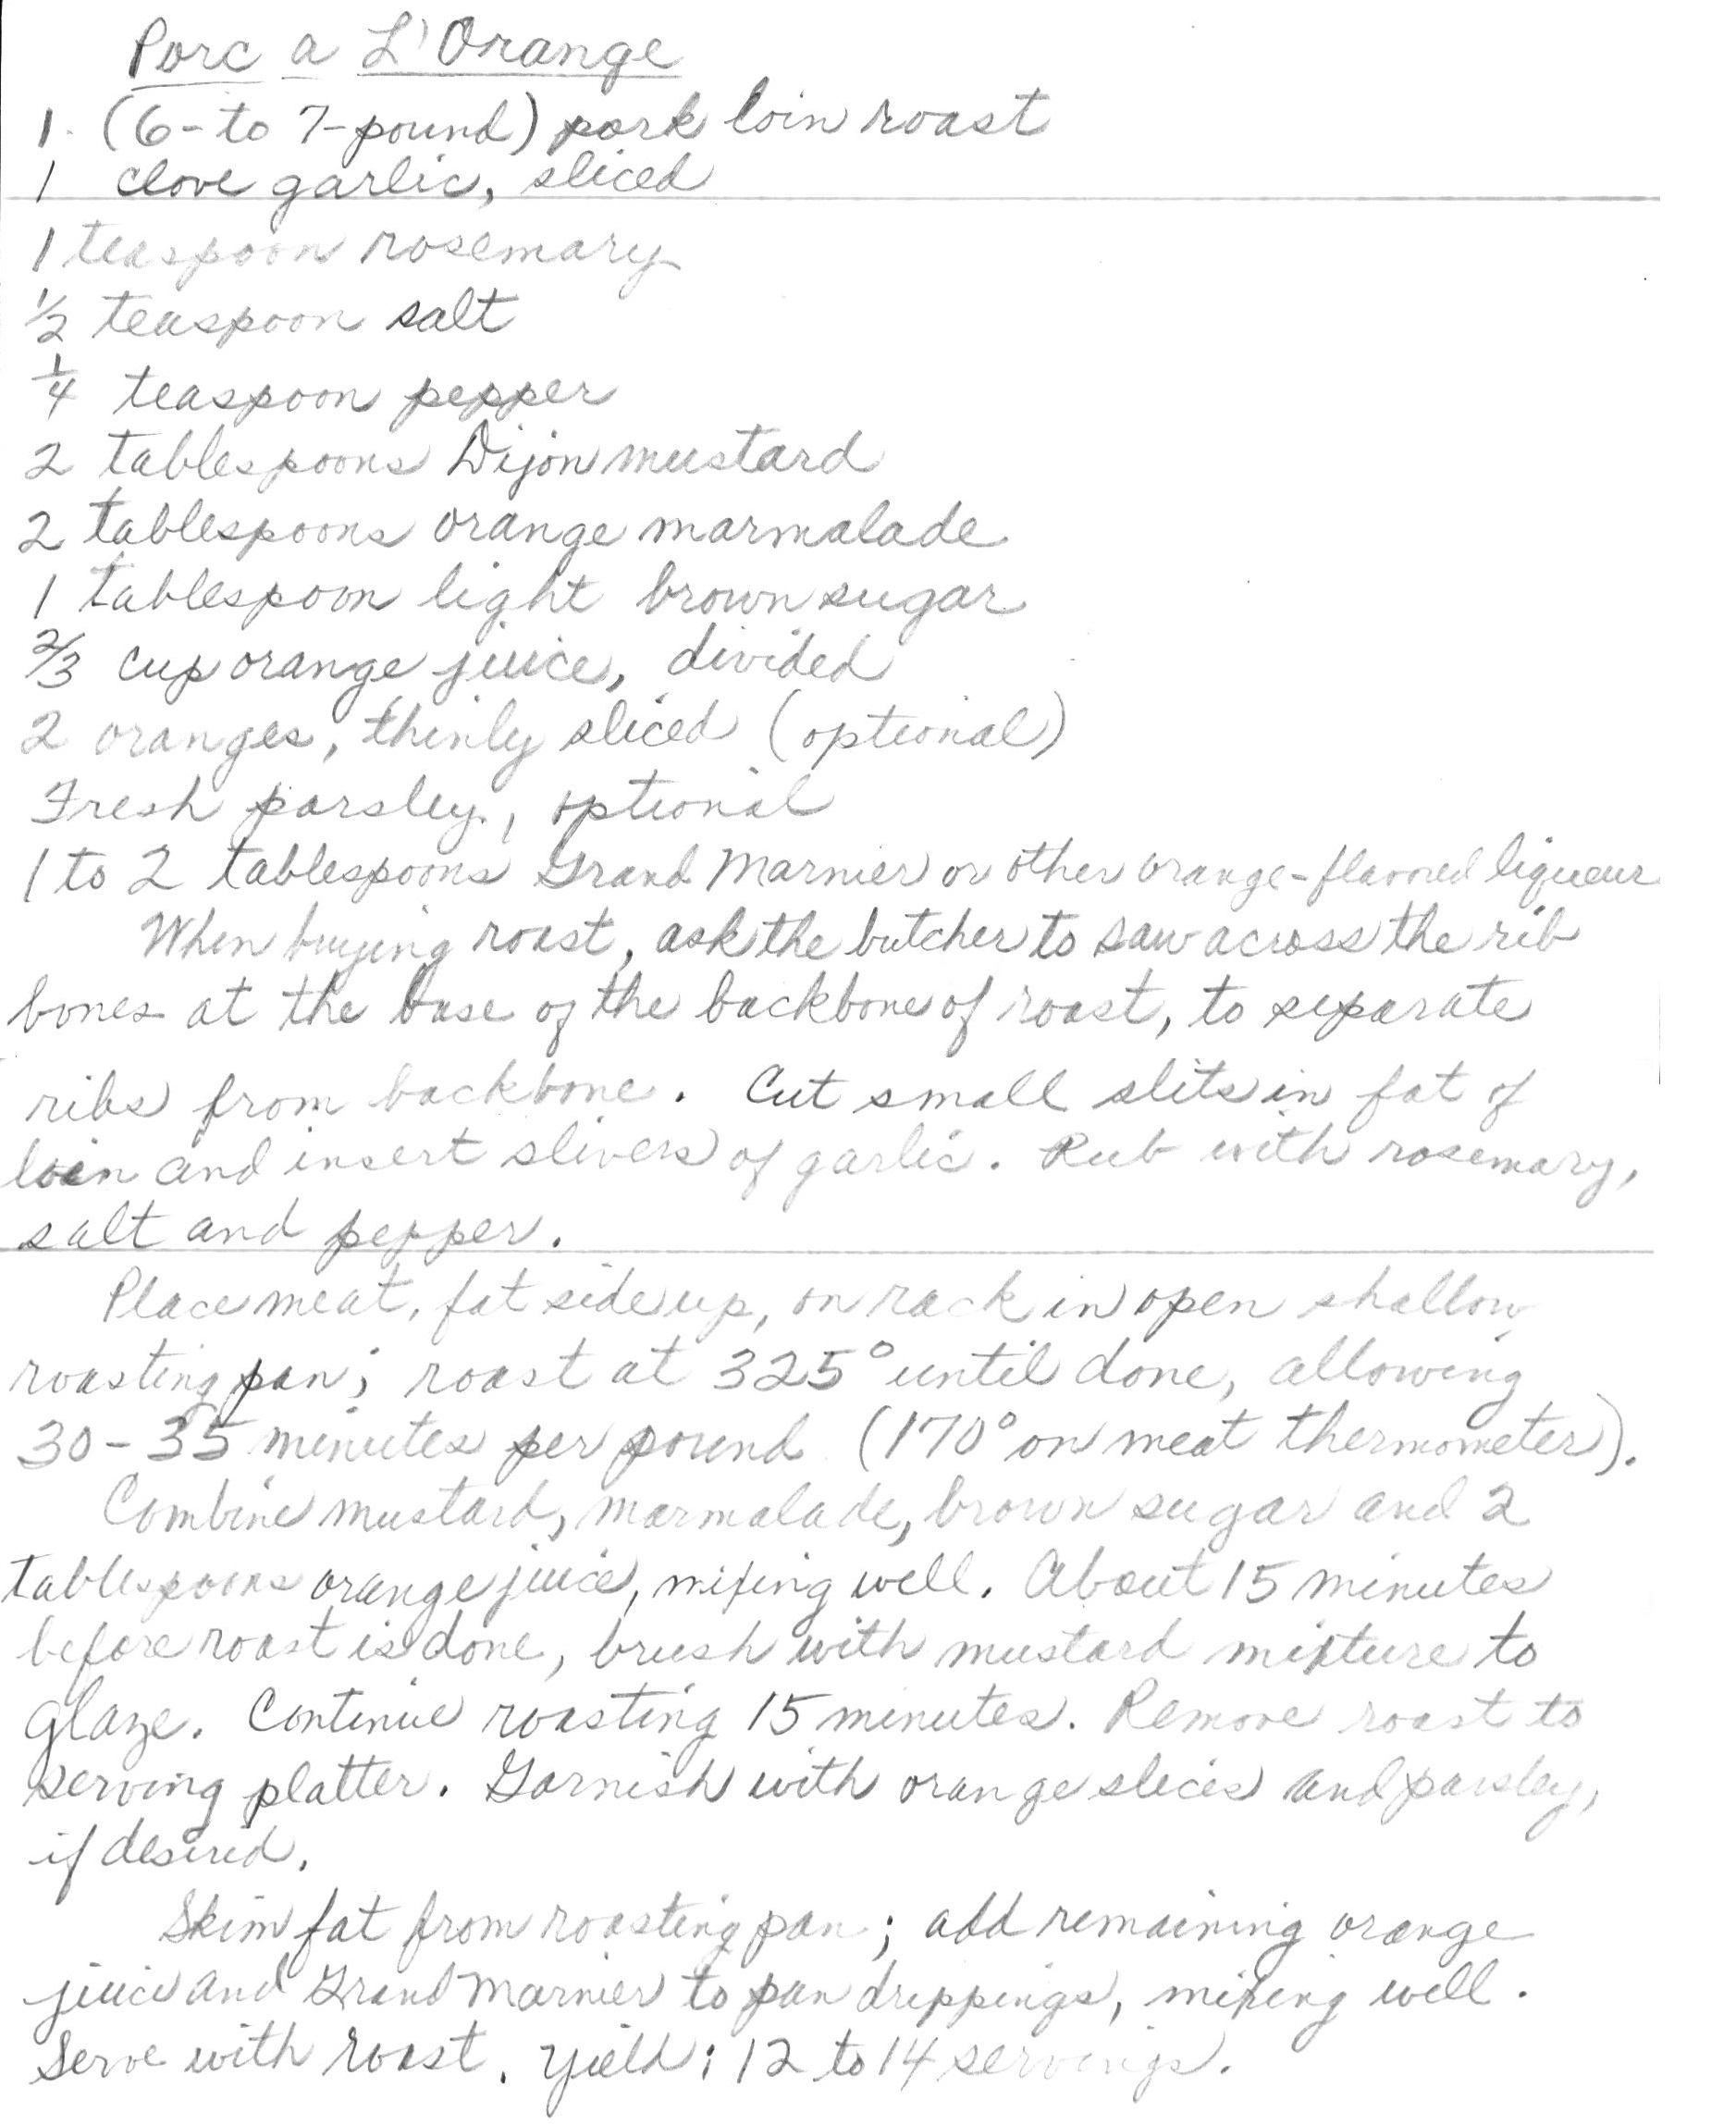 Porc a L'Orange
1 (6-to 7-pound) pork loin roast
1 clove garlic, sliced
1 teaspoon rosemary
1/2 teaspoon salt
1/4 teaspoon pepper
2 tablespoons Dijon mustard
2 tablespoons orange marmalade
1 tablespoon light brown sugar
2/3 cup orange juice, divided
2 oranges, thinly sliced (optional)
Fresh parsley, optional
1 to 2 tablespoons Grand Marnier or other orange-flavored liqueur
When buying roast, ask the butcher to saw across the rib
bones at the base of the backbone of roast, to separate
ribs from backbone. Cut small slits in fat of
loin and insert slivers of garlic. Rub with rosemary,
salt and pepper.
Place meat, fat side up, on rack in open shallow
roasting pan; roast at 325° until done, allowing
30-35 minutes per pound (170° on meat thermometer).
Combine mustard, marmalade, brown sugar and 2
tablespoons orange juice, mixing well. About 15 minutes
before roast is done, brush with mustard mixture to
glaze. Continue roasting 15 minutes. Remove roast to
serving platter. Garnish with orange slices and parsley,
if desired.
Skim fat from roasting pan; add remaining orange
juice and Grand Marnier to pan drippings, mixing well.
Serve with roast. Yield: 12 to 14 servings.